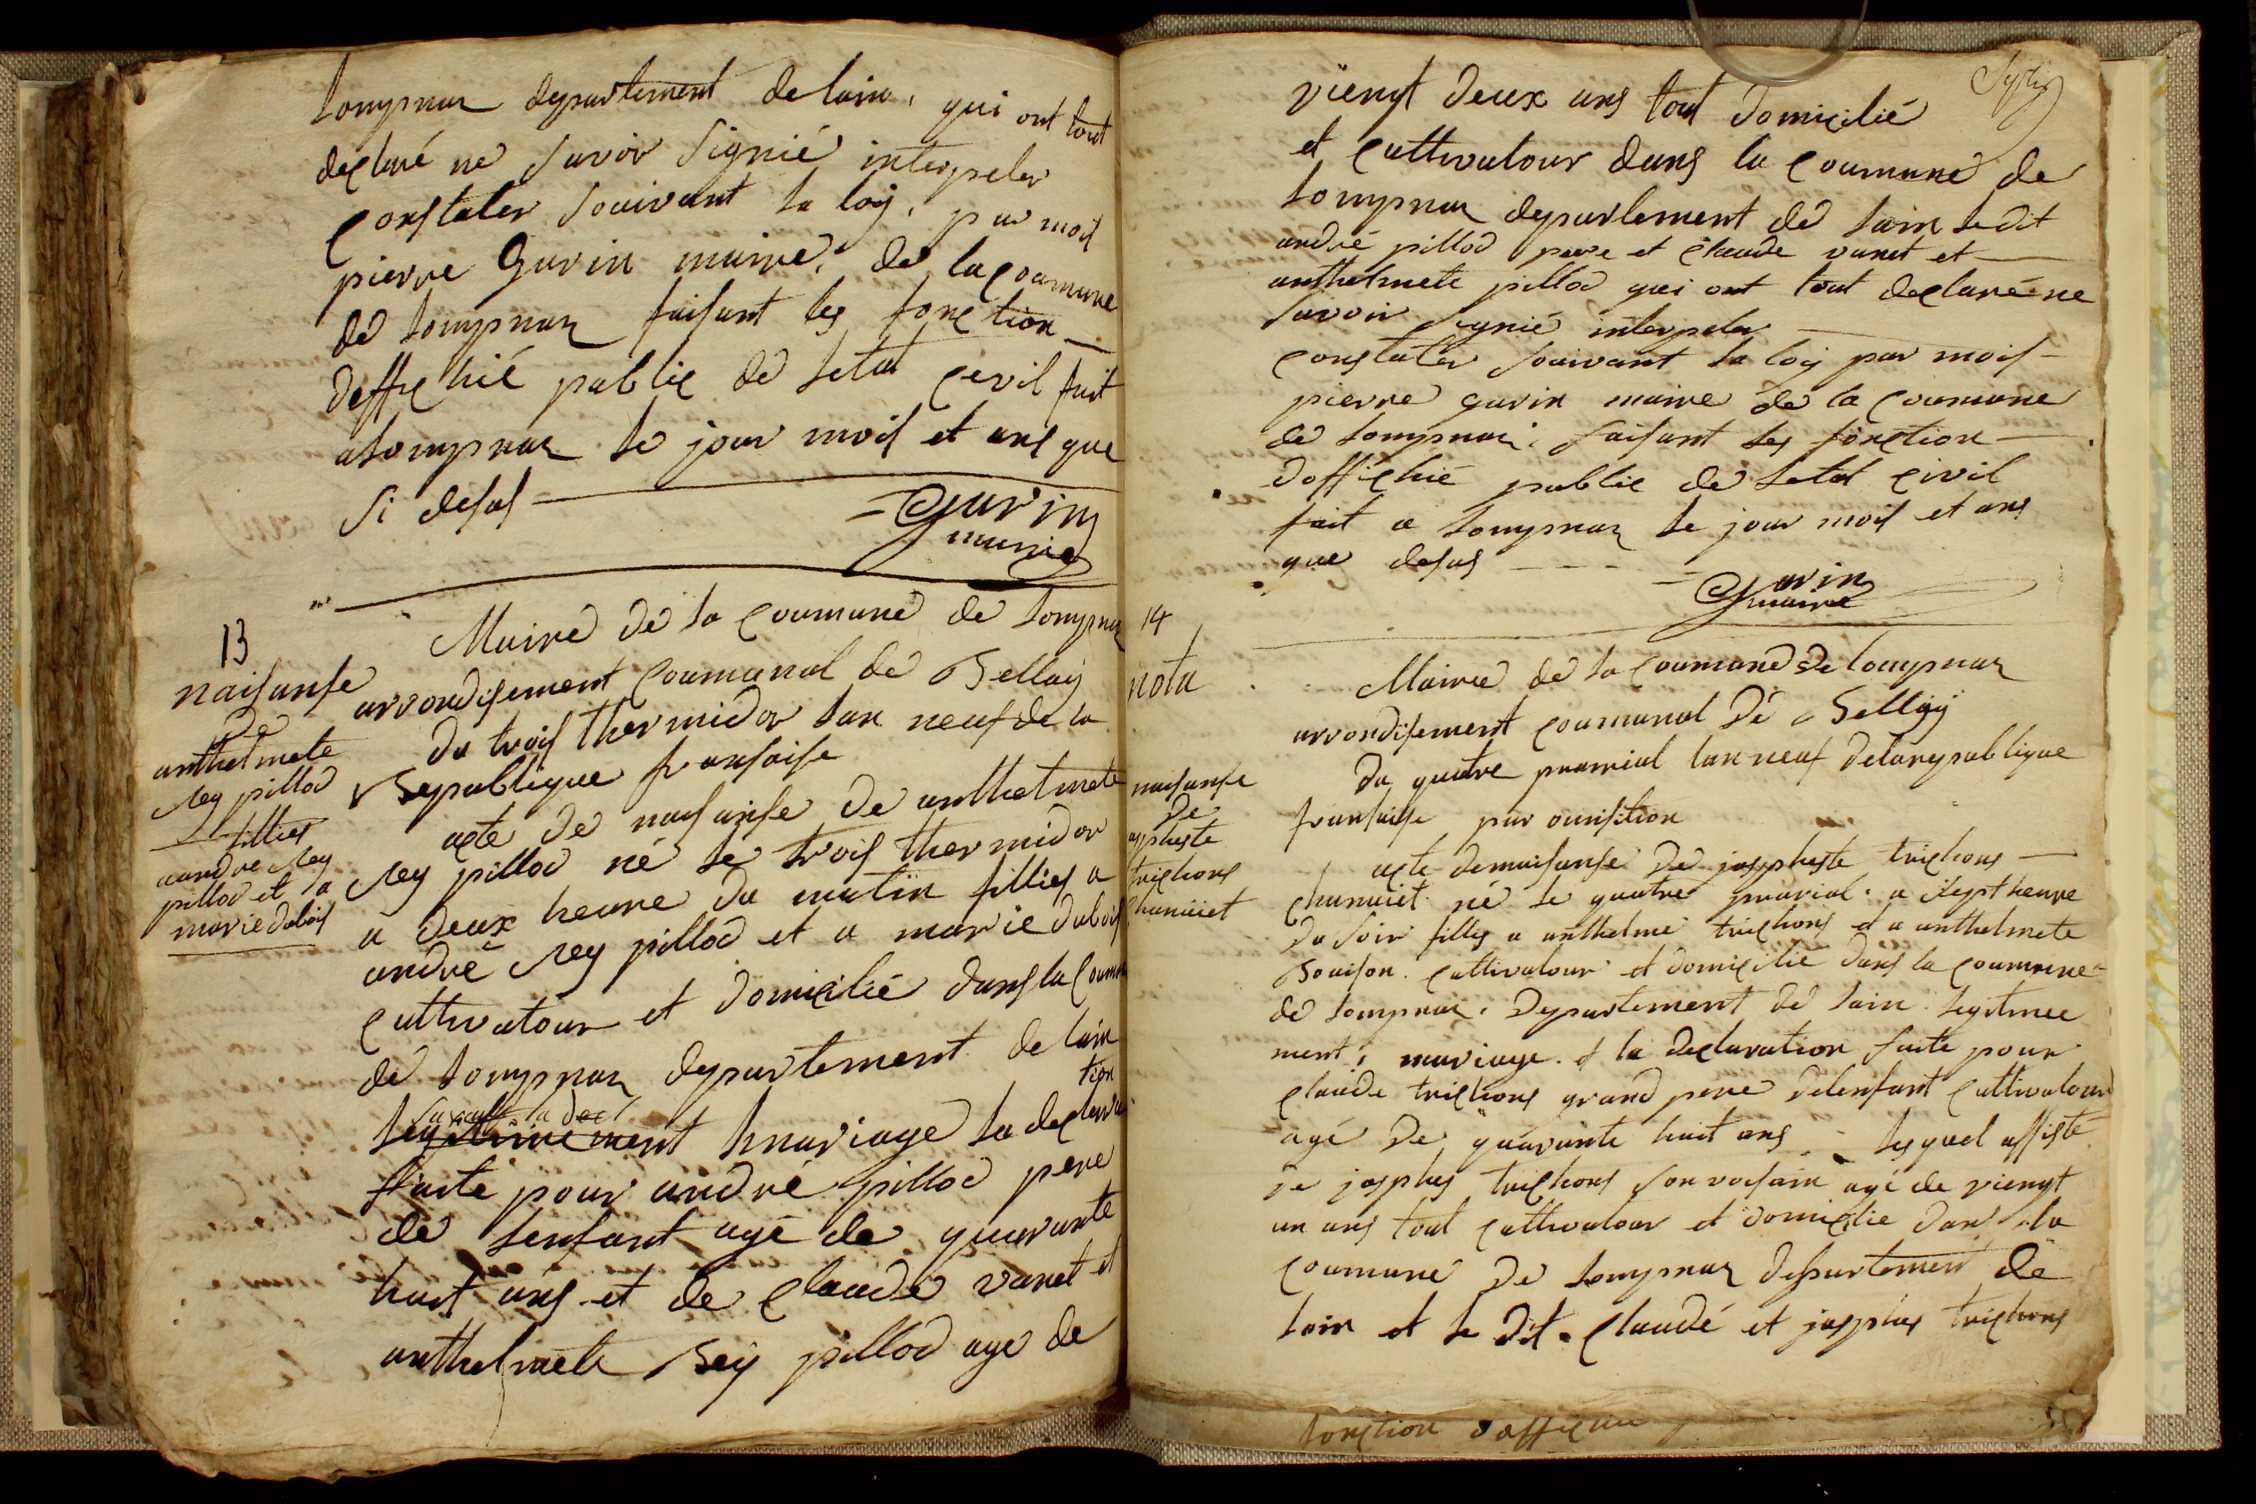 Lompnaz departement de lain, qui ont tout
declaré ne savoir signié interpeler
constater souivant la loij, par mois
pierre Gurin maire, de la coumune
de Lompnaz faisant les fonction
doffichié publie de letat cevil fait
a Lompnaz le jour mois et ans que
si desus
Gurin
maire
13
naisanse
de
anthelmete
Rey pillod
fillies
a andre Rey
pillod et a
marie dubois
Maire de la coumune de Lompnaz
arrondisement coumunal de Belley
du trois thermidor lan neuf de la
Republique fransaise
acte de naisanse de anthelmete
Rey pillod né le trois thermidor
a deux heure du matin fillies a
andré Rey pillod et a marie dubois
cultivatour et domicilié dans la coumune
de Lompnaz departement de lain
tion
legitimement mariage la declara
faite pour andré pillod pere
de lenfant agé de quarante
huit ans et de claude vanet et
anthelmete Rey pillod age de
viengt deux ans tout domicilié
et cultivatour dans la coumune de
Lompnaz departement de lain ledit
andré pillod pere et claude vanet et
anthelmete pillod qui ont tout declaré ne
savoir signié interpeler
constater souivant la loij par mois
pierre gurin maire de la coumune
de Lompnaz, faisant les fonction
dofficihié publie de letat civil
fait a Lompnaz le jour mois et ans
que desus
Gurin
maire
14
nota
naisanse
de
josphste
trichons
chanuiet
Mairie de la coumune de Lompnaz
arrondisement coumunal dé Belleÿ
du quatre prairial lan neuf de la republique
fransaise par oumition
acte de naisanse de josphste trichons
chanuiet né le quatre prairial a sept heure
du soir fillies a anthelme trichons et a anthelmete
Bouison cultivatour et domicilié dans la coumune
de Lompnaz, departement de lain legitmee
ment, mariage et la declaration faite pour
claude trichons grand pere de lenfant cultivatour
agé de quarante huit ans lesquel assisté
de josphes trichons son voisain agé de viengt
un ans tout cultivatour et domicilie dans la
coumune de Lompnaz departement de
lain et le dit claudé et josphes trichons
fonction dofficihié